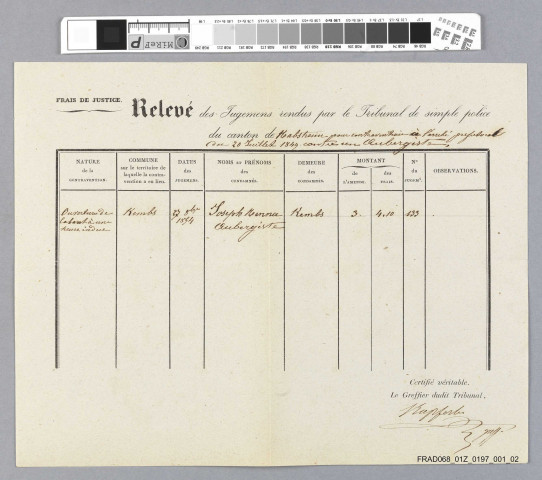 FRAIS DE JUSTICE.
Relevé des Jugemens rendus par le Tribunal de simple police
du canton de Habsheim pour contravention à l'arrêté préfectoral
du 28 Juillet 1844 contre un Aubergiste
NATURE de la CONTRAVENTION.
COMMUNE sur le territoire de laquelle la contravention a eu lieu.
DATES des JUGEMENS.
NOMS ET PRÉNOMS des CONDAMNÉS.
DEMEURE des CONDAMNÉS.
MONTANT
de L'AMENDE.
des FRAIS.
N° du JUGEMT.
OBSERVATIONS.
Ouverture de
cabaret à une
heure indue
Kembs
8bre
1854
Joseph
Aubergiste
Kembs
3.
4.10
133
Certifié véritable.
Le Greffier dudit Tribunal,
FRAD068_01Z_0197_001_02